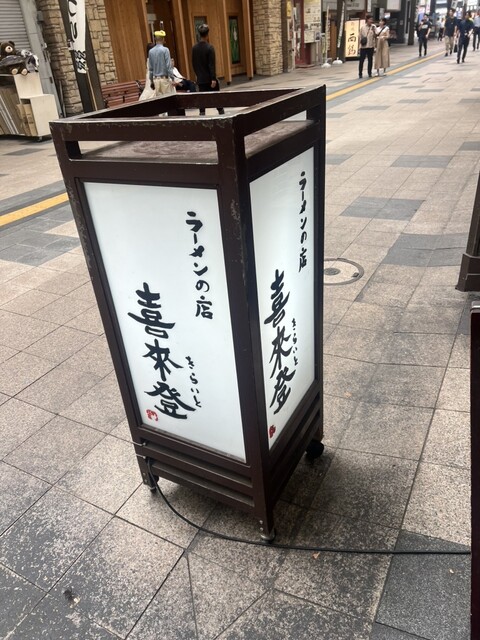 ラーメンの店
喜來登
きらいと
ラーメンの店
喜來登
きらいと